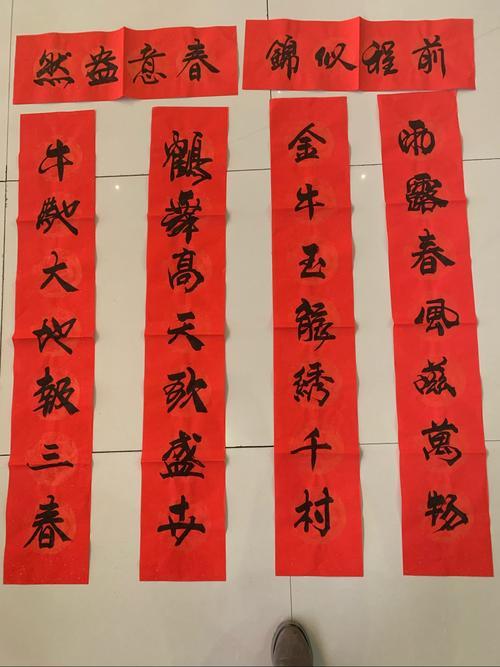 前程似錦
春意盎然
雨露春風滋萬物
金牛玉綉千村
鶴舞高天歌盛世
牛馳大地報三春